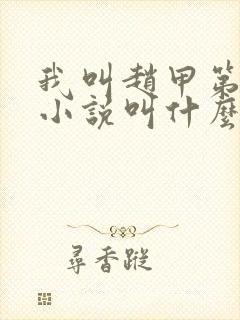 我叫趙甲第
小說叫什麼
尋香蹤